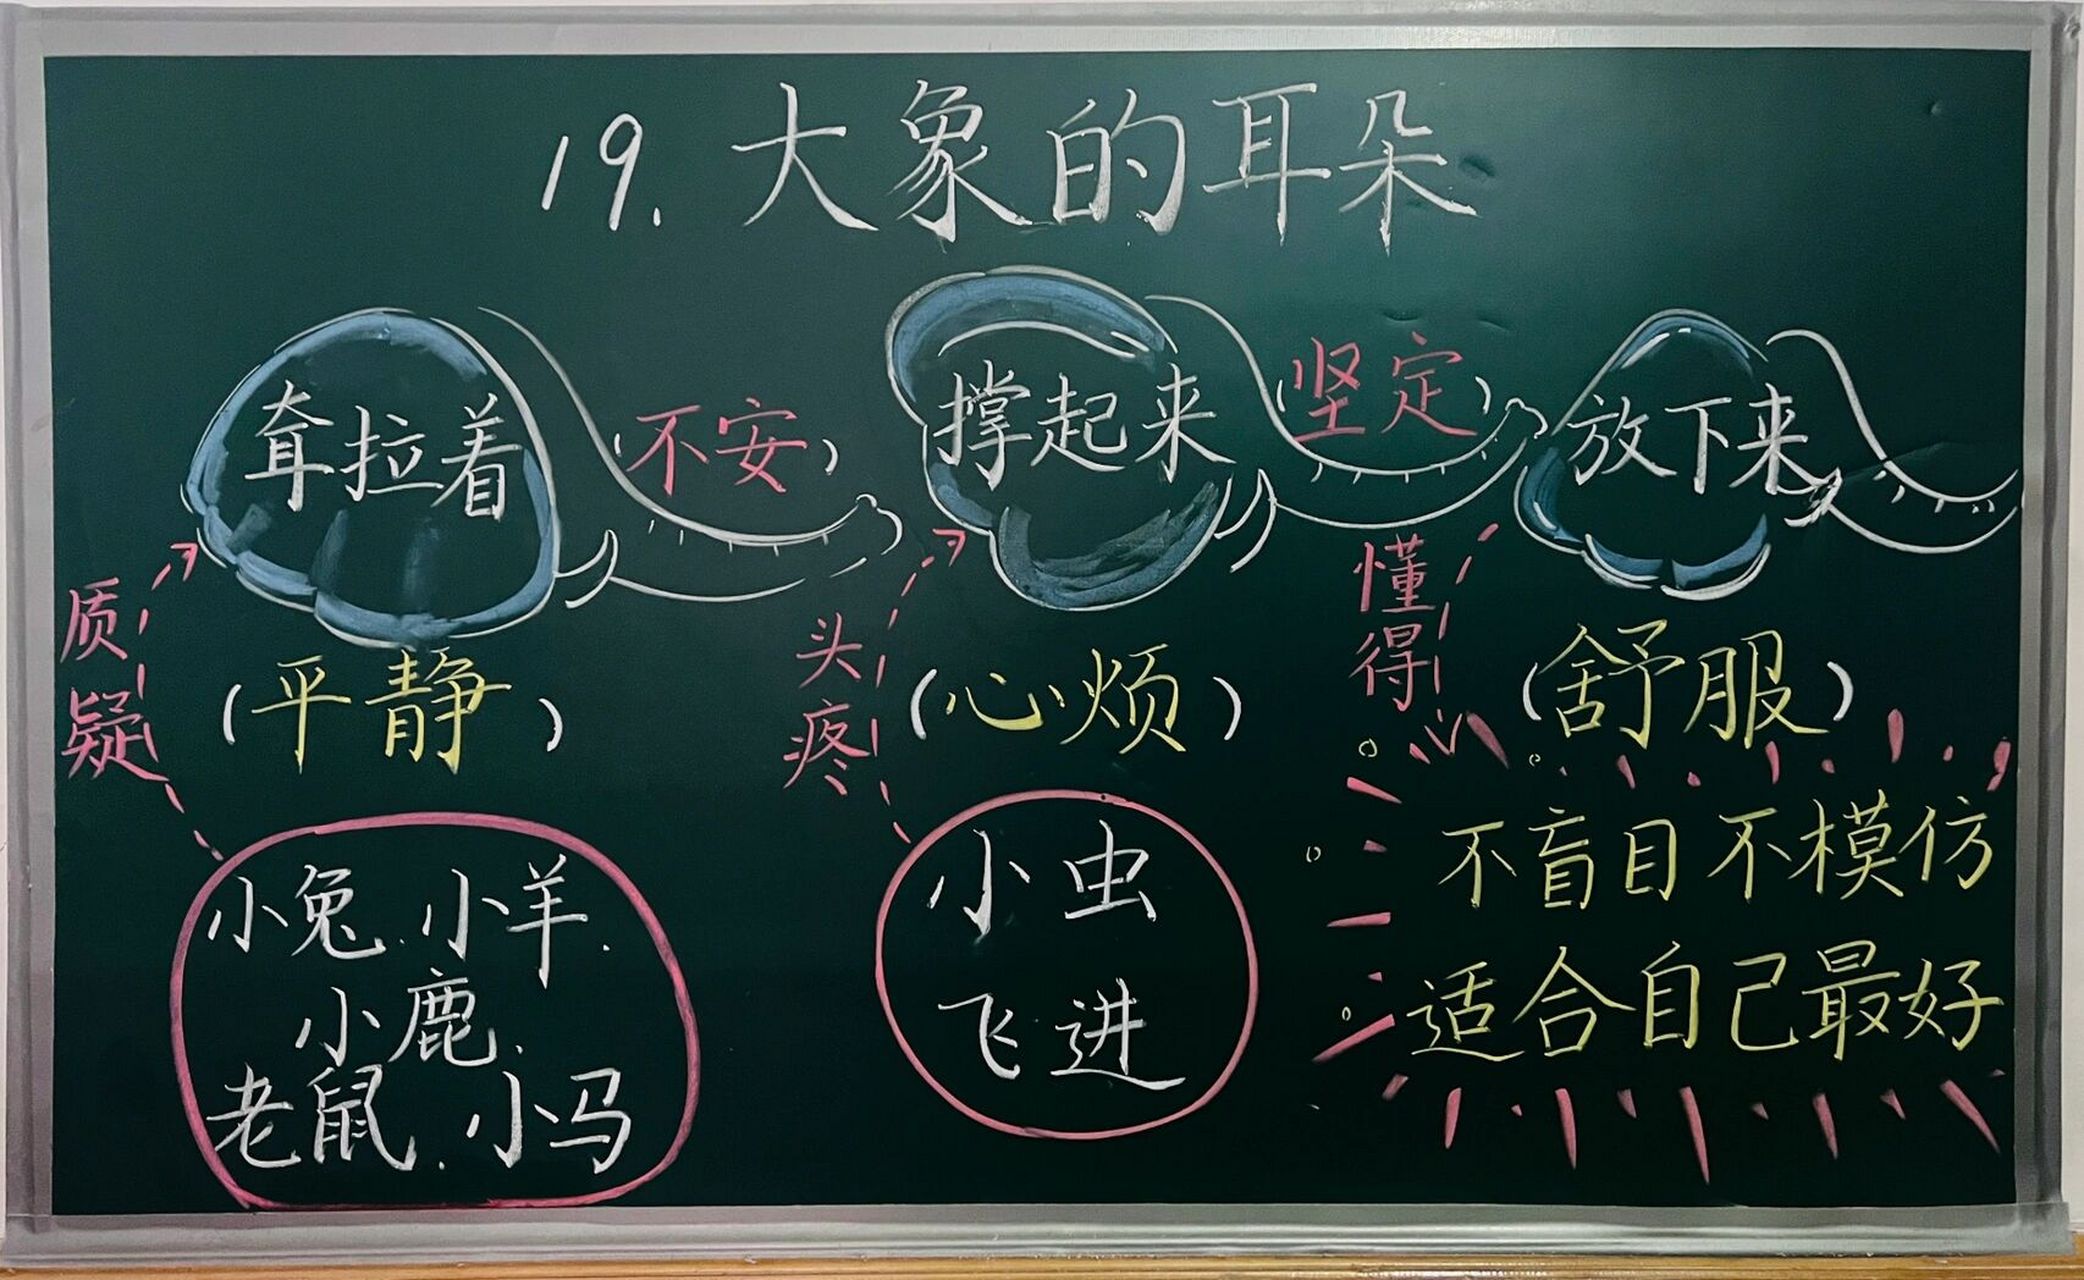 19. 大象的耳朵
耷拉着
(不安)
撑起来
(坚定)
放下来
质疑
(平静)
头疼
(心烦)
懂得
(舒服)
小兔.小羊.
小鹿.
老鼠.小马
小虫
飞进
不盲目不模仿
适合自己最好